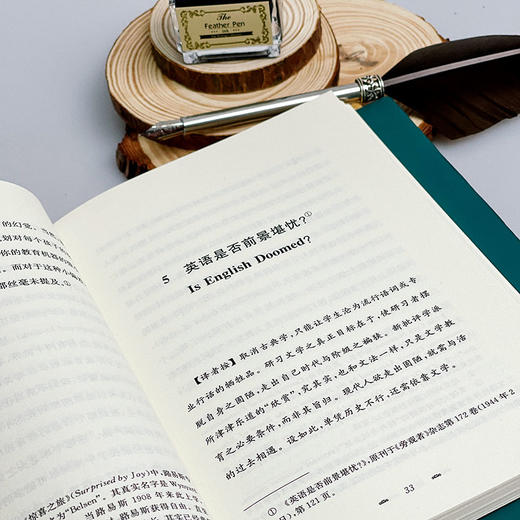 The
Feather Pen
的幻觉，当然
规划对每个孩子的
你的教育机器的
。而对于这种小
那丝毫未提及。①
惊喜之旅》(Surprised by Joy)中，路易斯
为"Belsen"。其真实名字是 Wynyard
当路易斯 1908 年来此上学
5 英语是否前景堪忧？①
Is English Doomed?
【译者按】取消古典学，只能让学生沦为流行语词或专
业行话的牺牲品。研习文学之真正目标在于，使研习者摆
脱自身之固陋，走出自己时代与阶级之偏狭。新批评学派
所津津乐道的“欣赏”，究其实，也和文法一样，只是文学教
育之必要条件，而非其旨归。现代人欲走出固陋，就需与活
的过去相遇。设如此，单凭历史不行，还需依靠文学。
① 《英语是否前景堪忧？》，原刊于《旁观者》杂志第 172 卷(1944 年 2
日)，第 121 页。
33